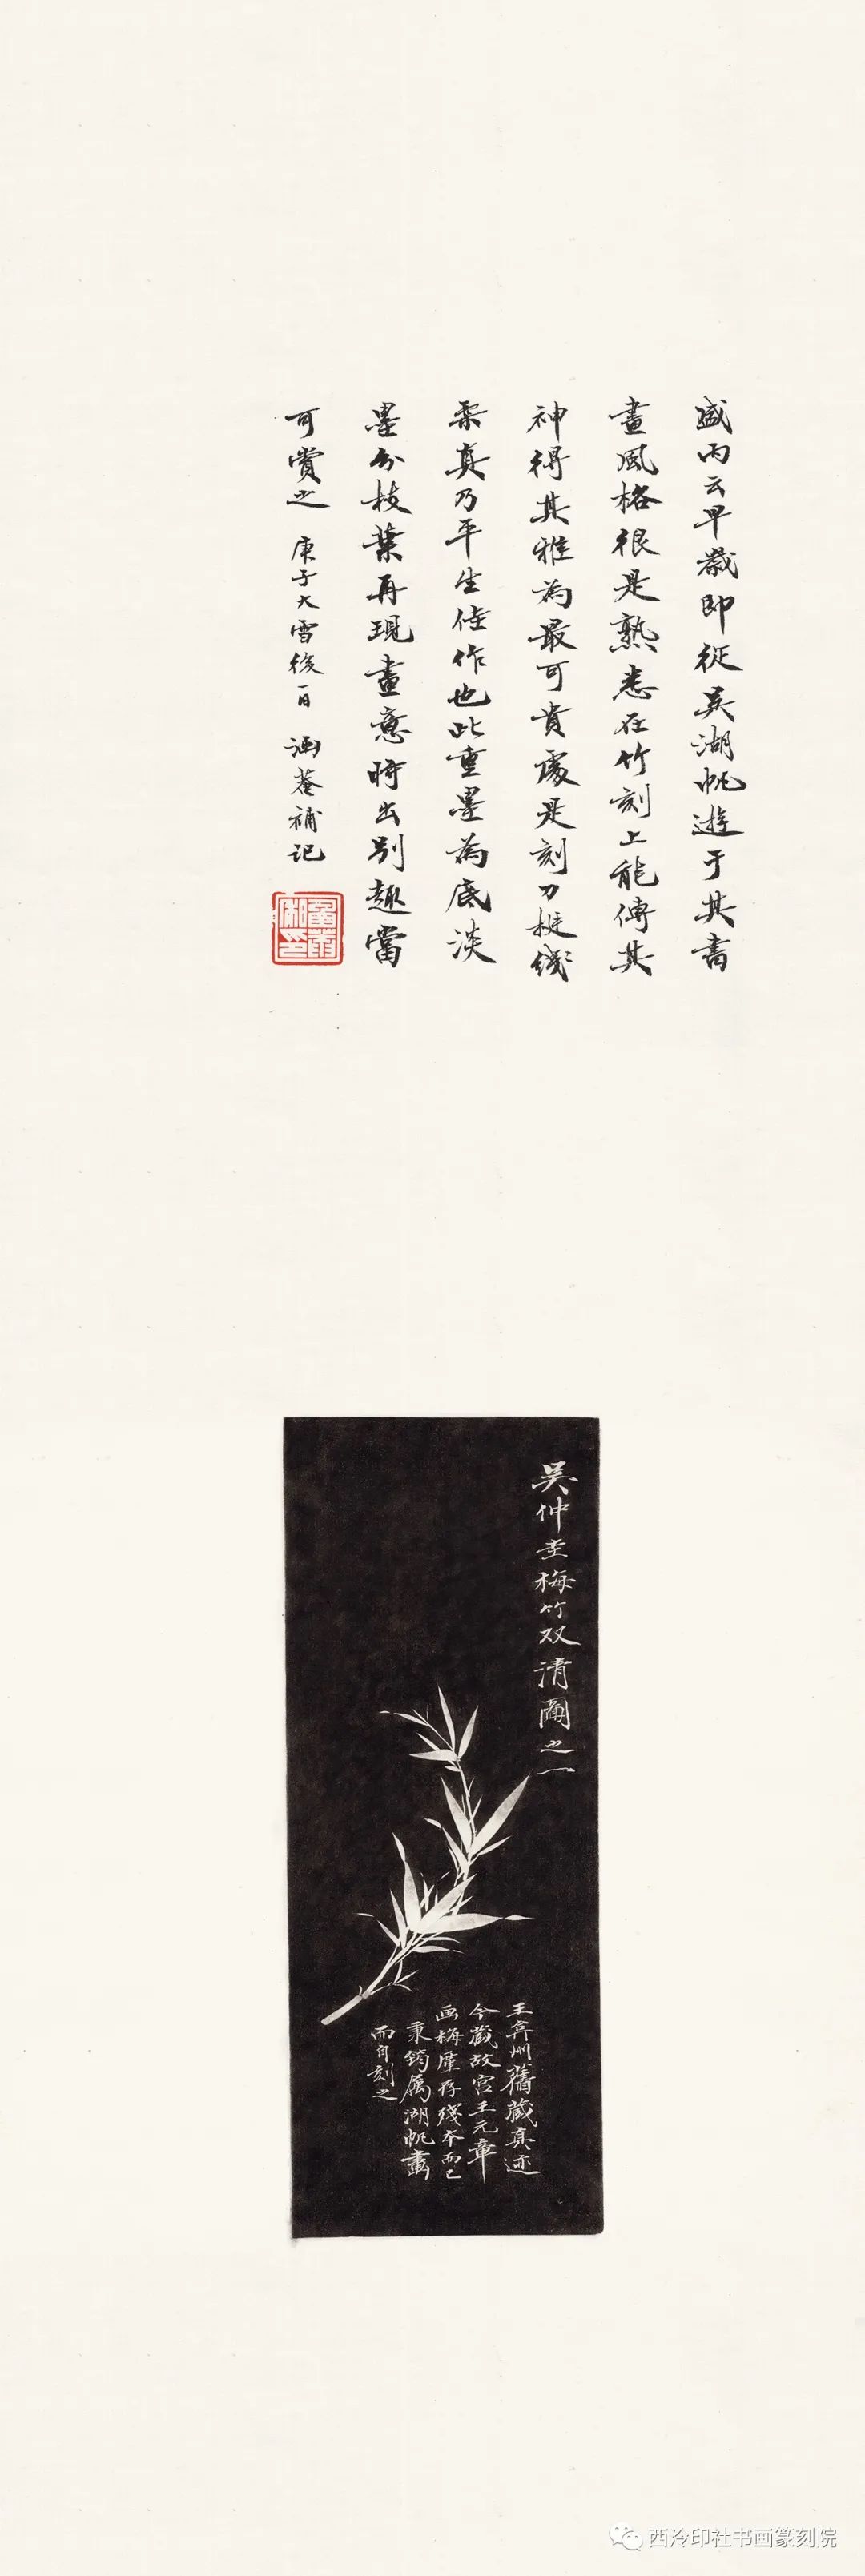 盛丙云早歲即從吳湖帆遊于其書
畫風格很是熟悉在竹刻上能傳其
神得其雅為最可貴處是刻刀挺綫
柔真乃平生佳作也此重墨為底淡
墨分枝葉再現畫意時出别趣當
可賞之 庚子大雪後一日 涵菴補記
吳仲圭梅竹双清圖之一
王弇州舊藏真迹
今藏故宫王元章
画梅廑存殘本而已
秉筠属湖帆畫
而自刻之
西泠印社书画篆刻院